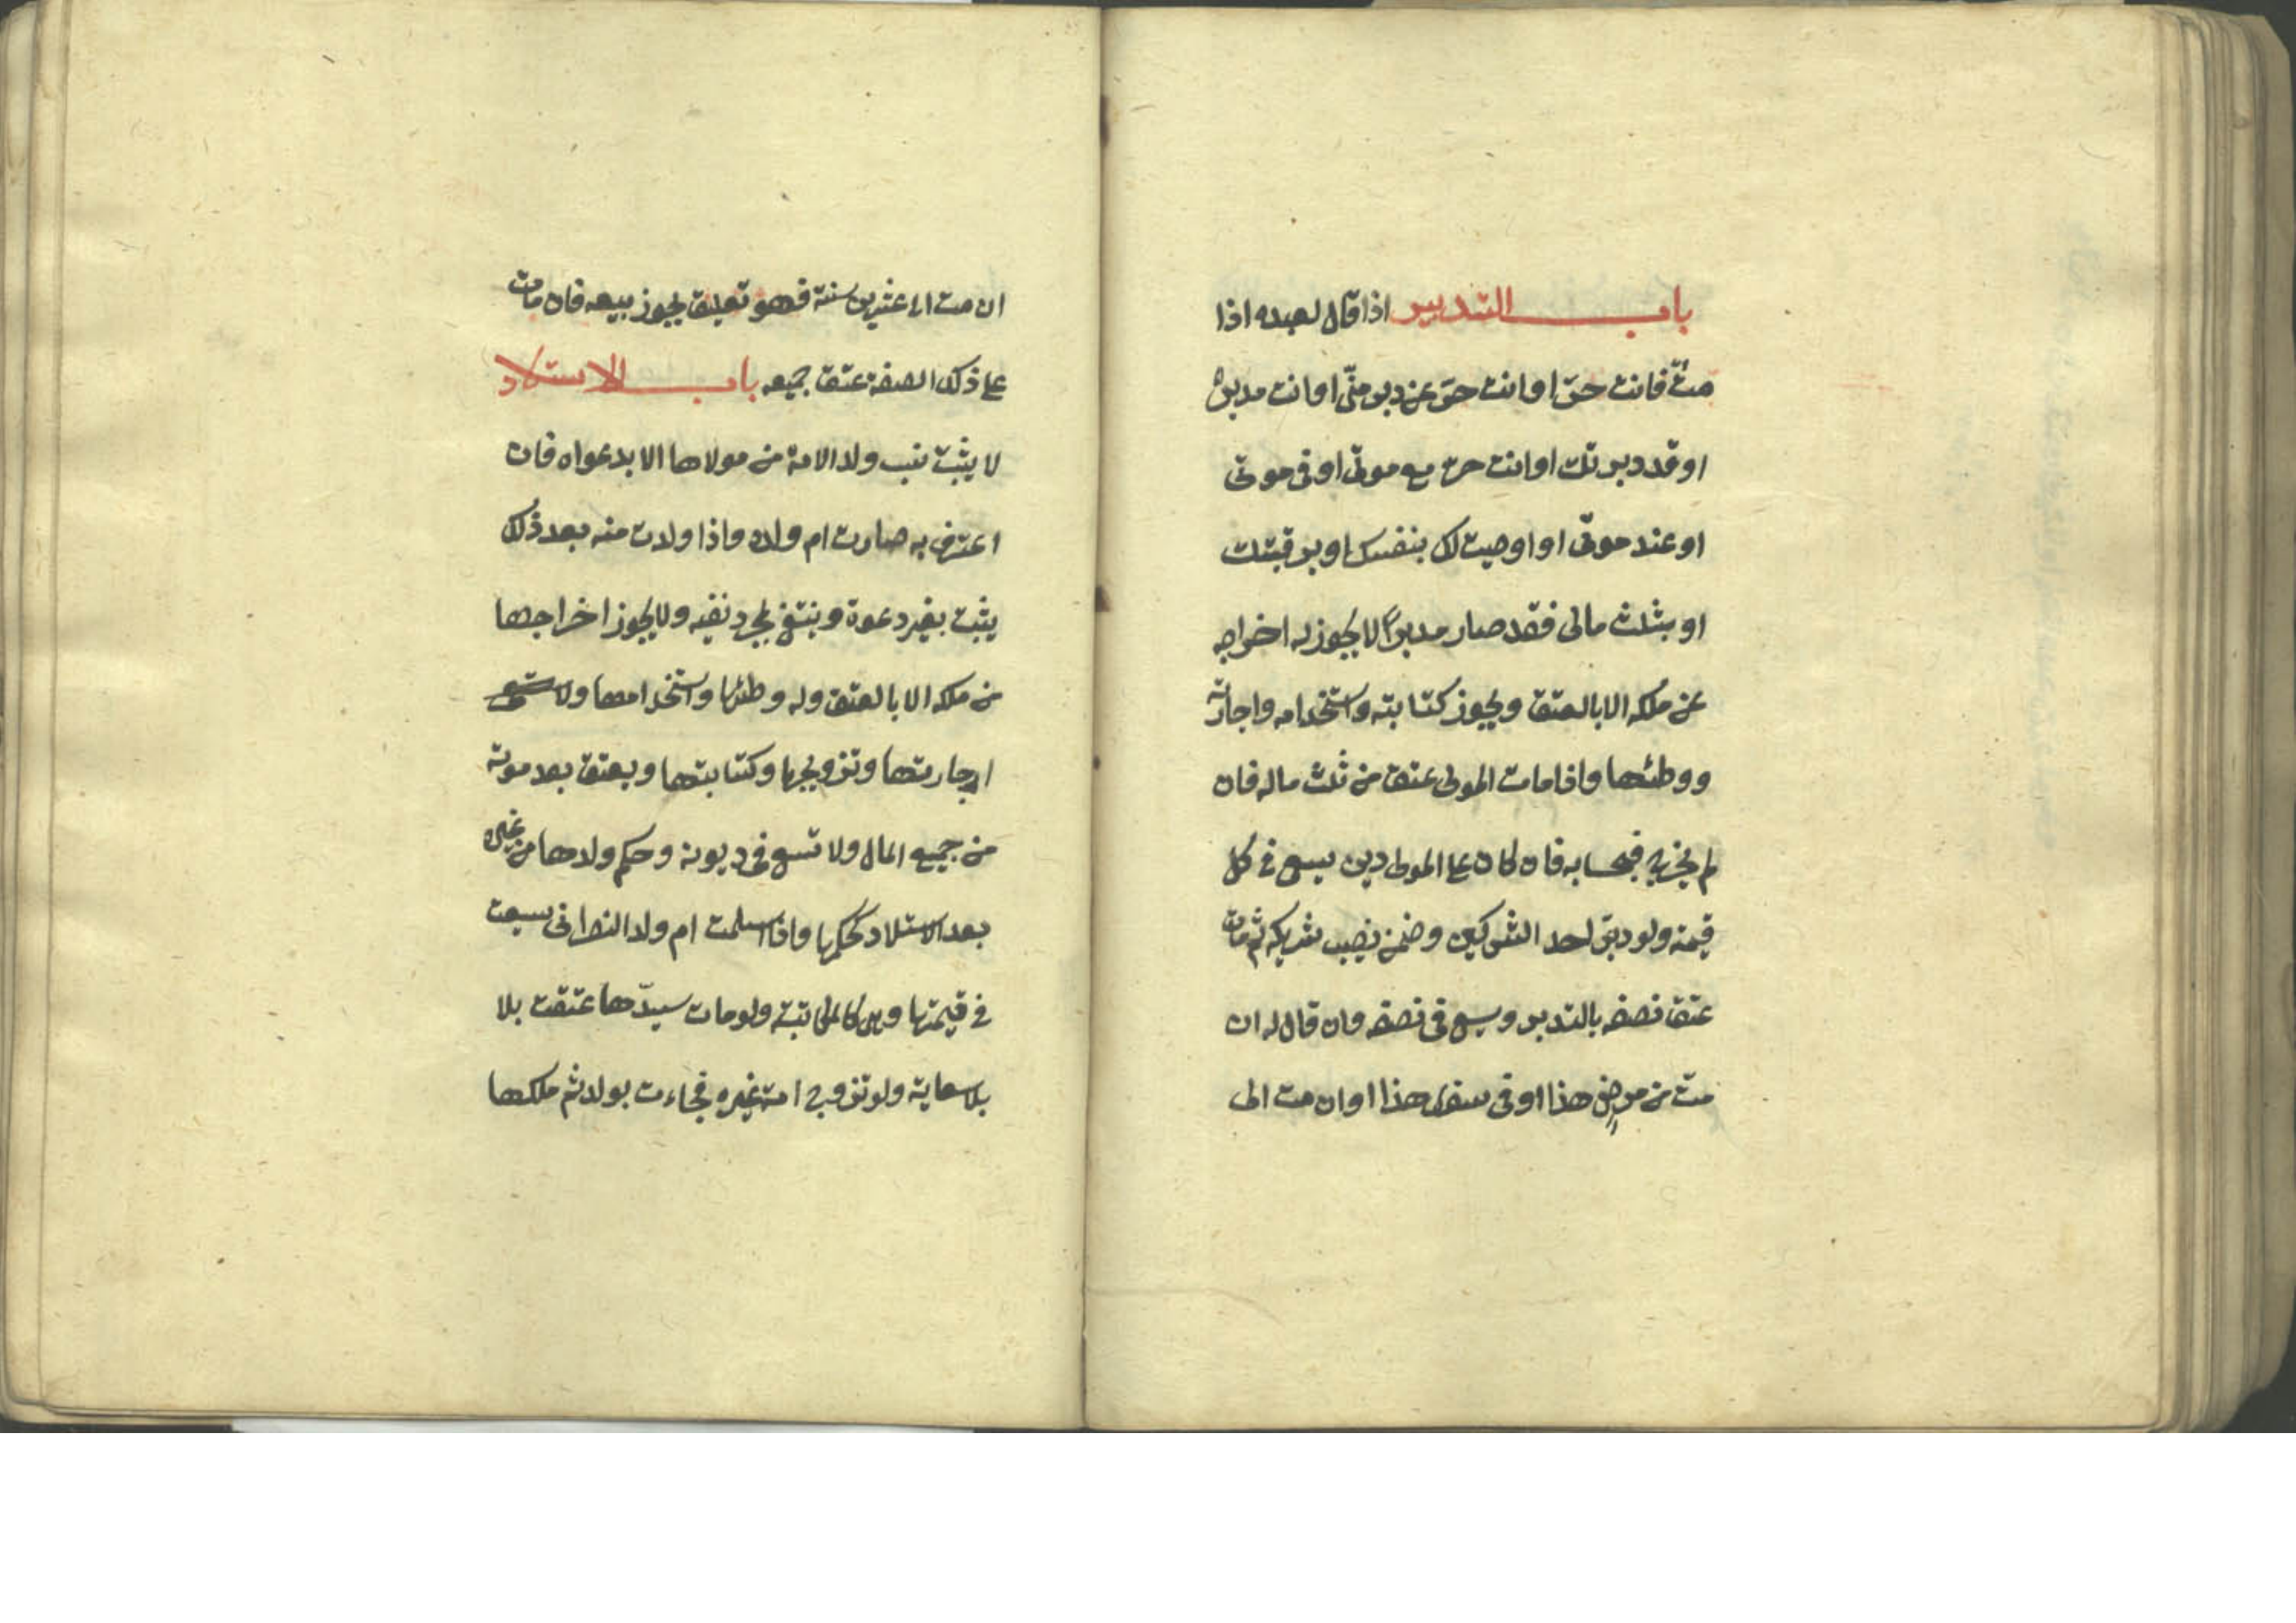 باب التدبير اذا قال لعبده اذا
متّ فانت حرّ او انت حرّ عن دبر منّي او انت مدبر
او قد دبرتك او انت حر مع موتي او في موتي
او عند موتي او اوصيت لك بنفسك او برقبتك
او بثلث مالى فقد صار مدبراً لا يجوز له اخراجه
عن ملكه الا بالعتق ويجوز كتابته واستخدامه واجارته
ووطئها واذا مات المولى عتق من ثلث ماله فان
لم يخرج فبحسابه فان كان على المولى دين يسعى في كل
قيمته ولو دبّر احد الشركين وضمن نصيب شريكه ثم مات
عتق نصفه بالتدبير وسعى في نصفه وان قال له ان
متّ من مرضي هذا او في سفرى هذا او ان مت الى
ان مت الى عشرين سنة فهو تعليق يجوز بيعه فان مات
على ذلك الصفة عتق جميعه باب الاستلاد
لا يثبت نسب ولد الامة من مولاها الا بدعواه فان
اعترف به صارت ام ولده واذا ولدت منه بعد ذلك
يثبت بغير دعوة وينتفي بمجرد نفيه ولا يجوز اخراجها
من ملكه الا بالعتق وله وطئها واستخدامها ولا
اجارتها وتزويجها وكتابتها ويعتق بعد موته
من جميع المال ولا تسعى في ديونه وحكم ولدها من غيره
بعد الاستلاد كحكمها واذا اسلمت ام ولد النصراني سعت
في قيمتها وهي كالمكاتبة ولو مات سيدّها عتقت بلا
بلا سعاية ولو تزوج امة غيره فجاءت بولد ثم ملكها